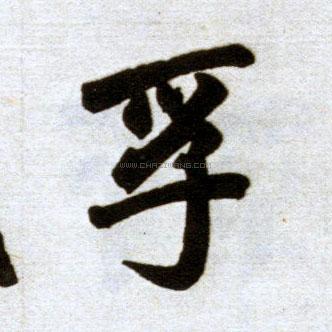 孚
WWW.CHAZIWANG.COM